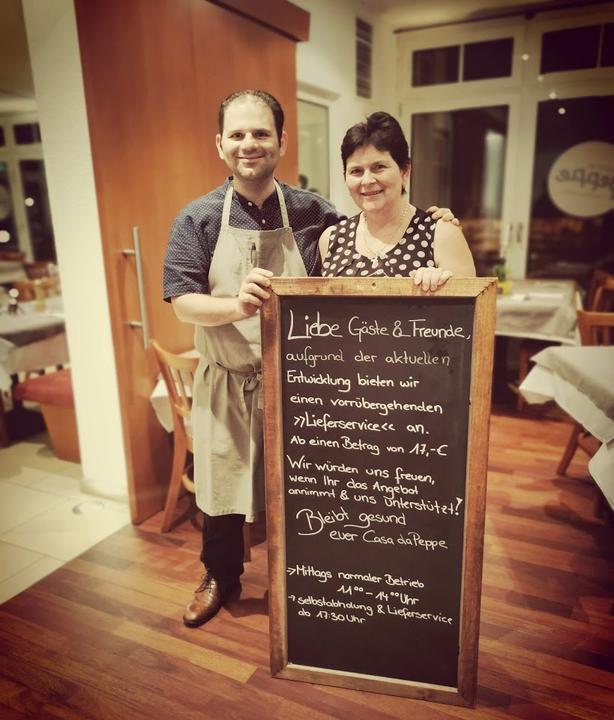 Liebe Gäste & Freunde,
aufgrund der aktuellen
Entwicklung bieten wir
einen vorrübergehenden
»Lieferservice« an.
Ab einen Betrag von 17,-€
Wir würden uns freuen,
wenn Ihr das Angebot
annimmt & uns Unterstützt!
Bleibt gesund
euer Casa daPeppe
→Mittags normaler Betrieb
11⁰⁰ - 14⁰⁰ Uhr
→ selbstabholung & Lieferservice
ab 17:30 Uhr